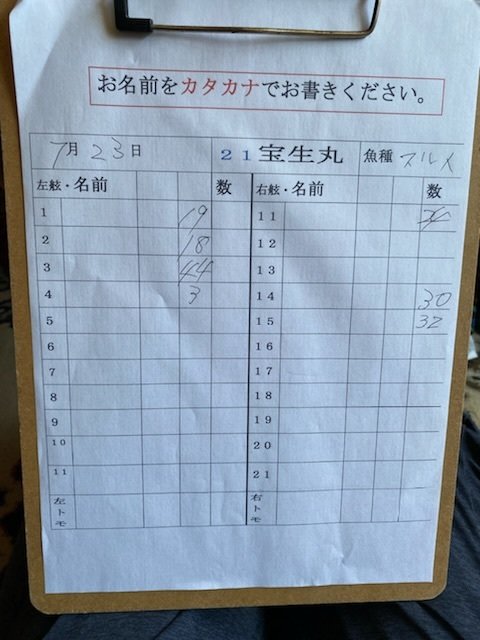 お名前をカタカナでお書きください。
7月23日 21宝生丸 魚種 スルメ
左舷・名前 数 右舷・名前 数
1 19 11
2 18 12
3 44 13
4 3 14 30
5 15 32
6 16
7 17
8 18
9 19
10 20
11 21
左トモ 右トモ